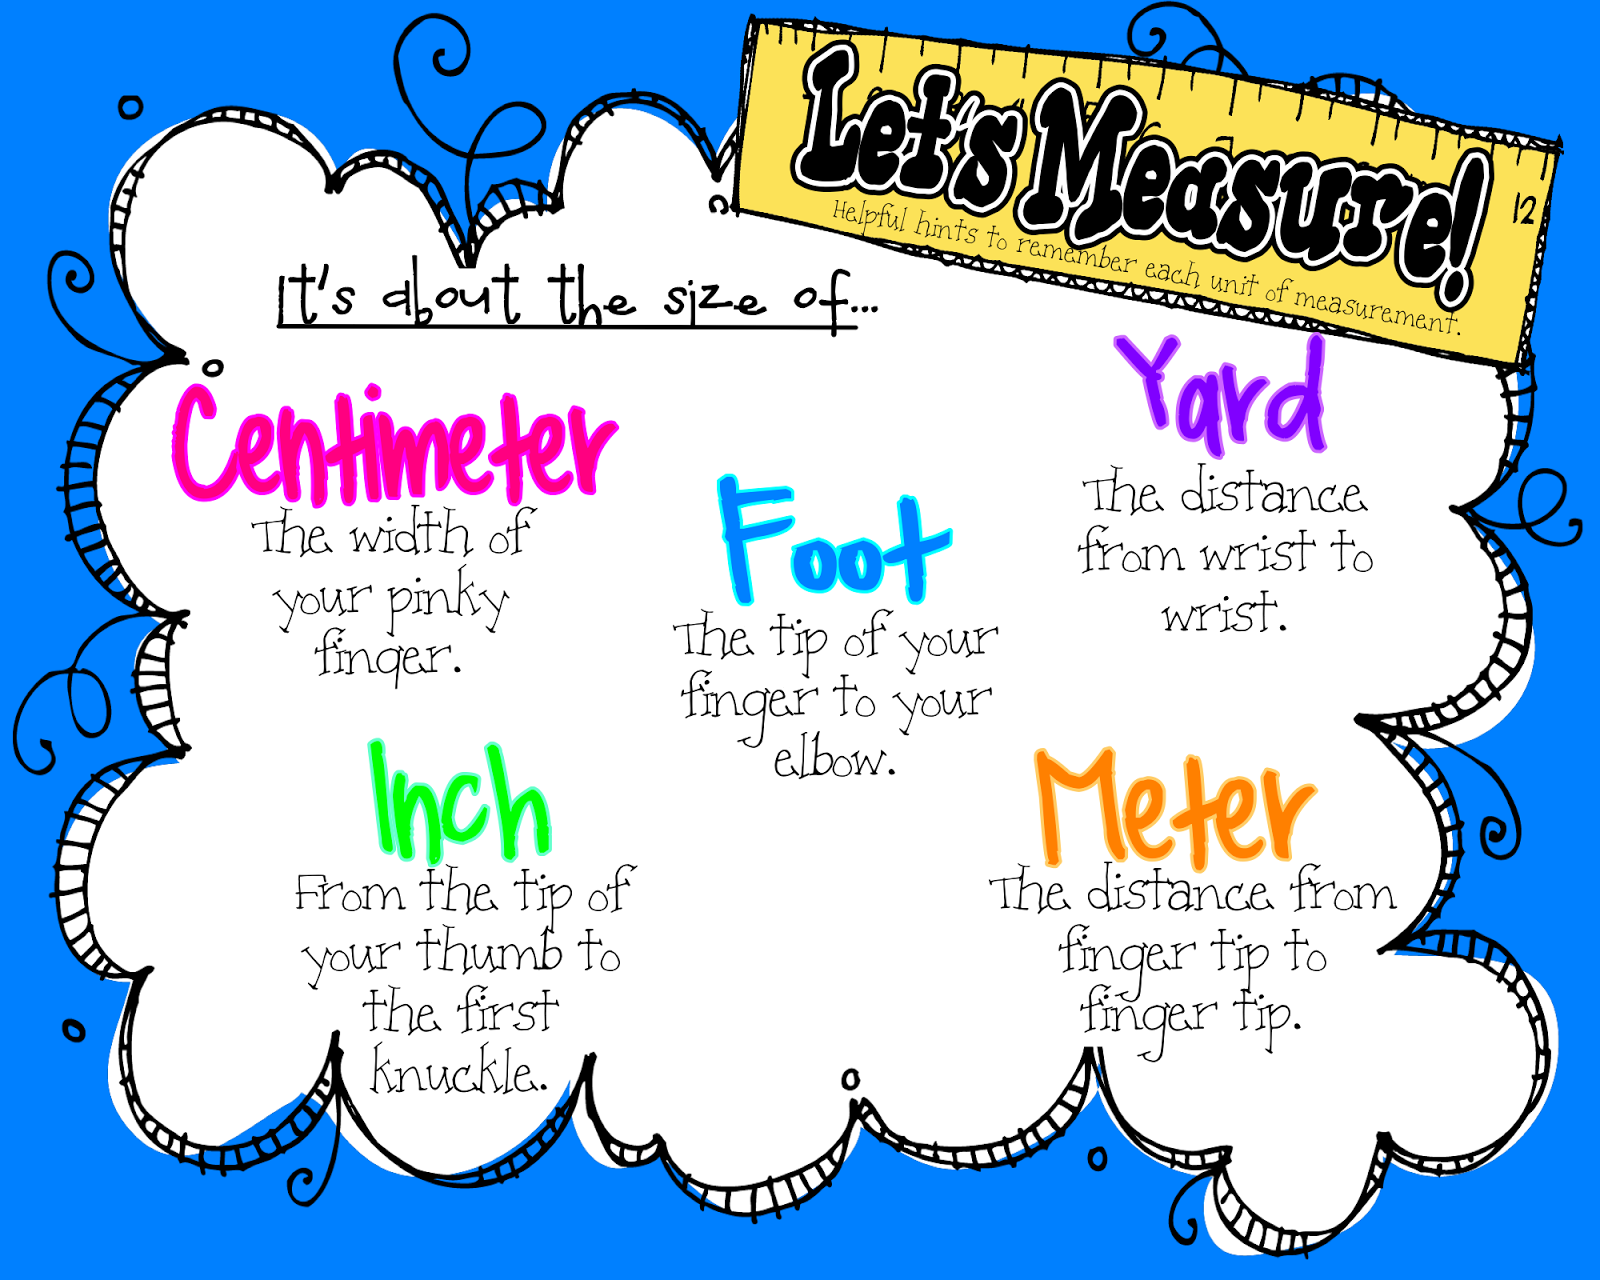 Let's Measure!
12
Helpful hints to remember each unit of measurement.
It's about the size of...
Centimeter
The width of
your pinky
finger.
Inch
From the tip of
your thumb to
the first
knuckle.
Foot
The tip of your
finger to your
elbow.
Yard
The distance
from wrist to
wrist.
Meter
The distance from
finger tip to
finger tip.